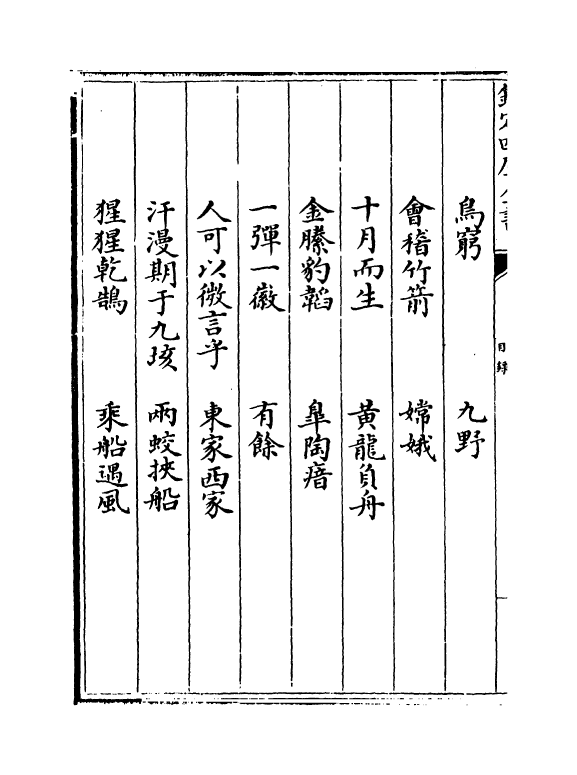 欽定四庫全書
目錄
烏窮 九野
會稽竹箭 嫦娥
十月而生 黃龍負舟
金縢豹韜 臯陶瘖
一彈一徽 有餘
人可以微言乎 東家西家
汗漫期于九垓 兩蛟挾船
猩猩乾鵠 乘船遇風